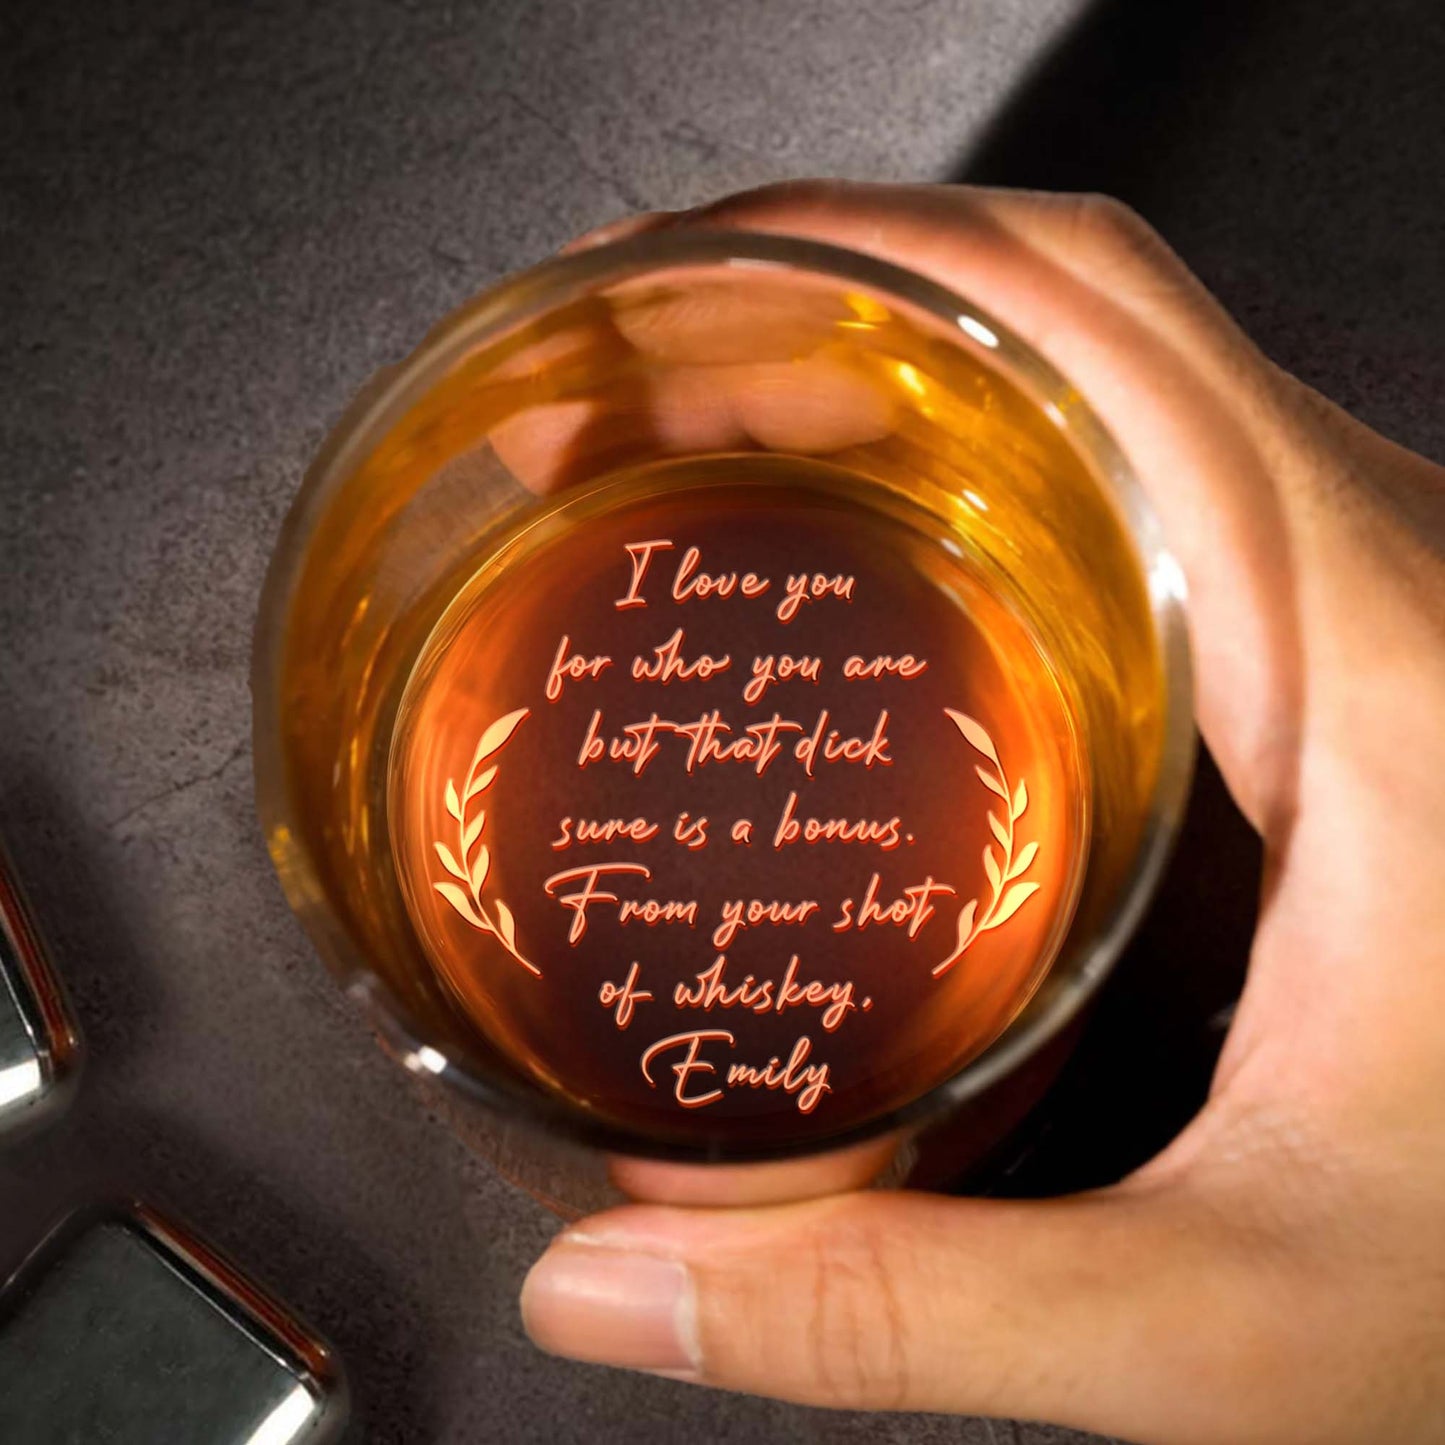 I love you
for who you are
but that dick
sure is a bonus.
From your shot
of whiskey,
Emily